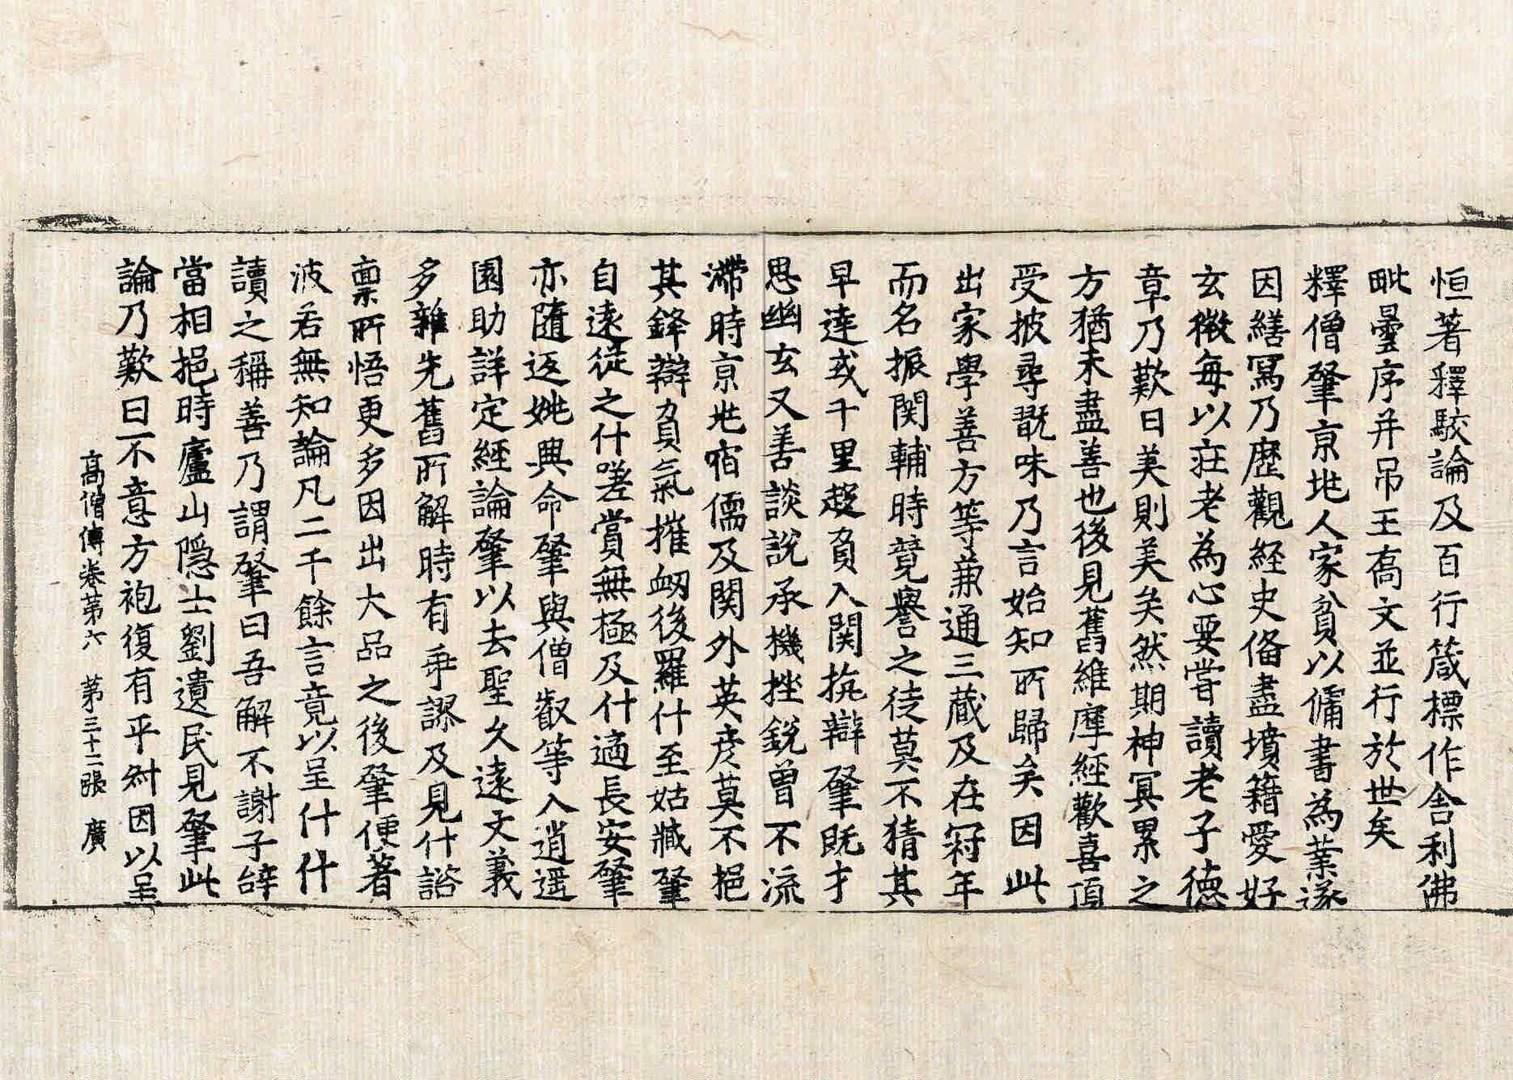 恒著釋駮論及百行箴標作舍利佛
毗曇序并吊王喬文並行於世矣
釋僧肇京地人家貧以傭書為業遂
因繕寫乃歷觀経史俻盡墳籍愛好
玄微每以莊老為心要甞讀老子德
章乃歎曰美則美矣然期神冥累之
方猶未盡善也後見舊維摩經歡喜頂
受披尋翫味乃言始知所歸矣因此
出家學善方等兼通三藏及在冠年
而名振関輔時競譽之徒莫不猜其
早達或千里趍負入関抗辯肇既才
思幽玄又善談說承機挫銳曾不流
滯時京兆宿儒及関外英彦莫不挹
其鋒辯負氣摧衂後羅什至姑臧肇
自遠從之什嗟賞無極及什適長安肇
亦隨返姚興命肇與僧叡等入逍遥
園助詳定經論肇以去聖久遠文義
多雜先舊所解時有乖謬及見什諮
禀所悟更多因出大品之後肇便著
波若無知論凡二千餘言竟以呈什什
讀之稱善乃謂肇曰吾解不謝子辝
當相挹時廬山隱士劉遺民見肇此
論乃歎曰不意方袍復有平叔因以呈
髙僧傳卷第六　第三十二張　廣